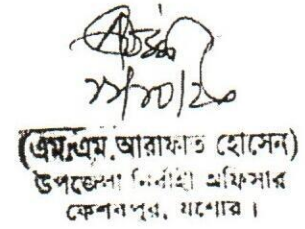 (এম,এম,আরাফাত হোসেন)
উপজেলা নির্বাহী অফিসার
কেশবপুর, যশোর।